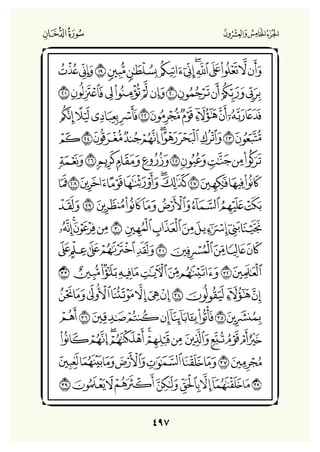 الجُزءُ الخَامِسُ وَالعِشرُونَ سُورَةُ الدُّخَانِ
وَأَن لَّا تَعْلُوا۟ عَلَى ٱللَّهِ ۖ إِنِّىٓ ءَاتِيكُم بِسُلْطَـٰنٍ مُّبِينٍ ١٩ وَإِنِّى عُذْتُ
بِرَبِّى وَرَبِّكُمْ أَن تَرْجُمُونِ ٢٠ وَإِن لَّمْ تُؤْمِنُوا۟ لِى فَٱعْتَزِلُونِ ٢١
فَدَعَا رَبَّهُۥٓ أَنَّ هَـٰٓؤُلَآءِ قَوْمٌ مُّجْرِمُونَ ٢٢ فَأَسْرِ بِعِبَادِى لَيْلًا إِنَّكُم
مُّتَّبَعُونَ ٢٣ وَٱتْرُكِ ٱلْبَحْرَ رَهْوًا ۖ إِنَّهُمْ جُندٌ مُّغْرَقُونَ ٢٤ كَمْ
تَرَكُوا۟ مِن جَنَّـٰتٍ وَعُيُونٍ ٢٥ وَزُرُوعٍ وَمَقَامٍ كَرِيمٍ ٢٦ وَنَعْمَةٍ
كَانُوا۟ فِيهَا فَـٰكِهِينَ ٢٧ كَذَٰلِكَ ۖ وَأَوْرَثْنَـٰهَا قَوْمًا ءَاخَرِينَ ٢٨ فَمَا
بَكَتْ عَلَيْهِمُ ٱلسَّمَآءُ وَٱلْأَرْضُ وَمَا كَانُوا۟ مُنظَرِينَ ٢٩ وَلَقَدْ
نَجَّيْنَا بَنِىٓ إِسْرَٰٓءِيلَ مِنَ ٱلْعَذَابِ ٱلْمُهِينِ ٣٠ مِن فِرْعَوْنَ ۚ إِنَّهُۥ
كَانَ عَالِيًا مِّنَ ٱلْمُسْرِفِينَ ٣١ وَلَقَدِ ٱخْتَرْنَـٰهُمْ عَلَىٰ عِلْمٍ عَلَى
ٱلْعَـٰلَمِينَ ٣٢ وَءَاتَيْنَـٰهُم مِّنَ ٱلْـَٔايَـٰتِ مَا فِيهِ بَلَـٰٓؤٌا۟ مُّبِينٌ ٣٣
إِنَّ هَـٰٓؤُلَآءِ لَيَقُولُونَ ٣٤ إِنْ هِىَ إِلَّا مَوْتَتُنَا ٱلْأُولَىٰ وَمَا نَحْنُ
بِمُنشَرِينَ ٣٥ فَأْتُوا۟ بِـَٔابَآئِنَآ إِن كُنتُمْ صَـٰدِقِينَ ٣٦ أَهُمْ
خَيْرٌ أَمْ قَوْمُ تُبَّعٍ وَٱلَّذِينَ مِن قَبْلِهِمْ ۚ أَهْلَكْنَـٰهُمْ ۖ إِنَّهُمْ كَانُوا۟
مُجْرِمِينَ ٣٧ وَمَا خَلَقْنَا ٱلسَّمَـٰوَٰتِ وَٱلْأَرْضَ وَمَا بَيْنَهُمَا لَـٰعِبِينَ
٣٨ مَا خَلَقْنَـٰهُمَآ إِلَّا بِٱلْحَقِّ وَلَـٰكِنَّ أَكْثَرَهُمْ لَا يَعْلَمُونَ ٣٩
٤٩٧